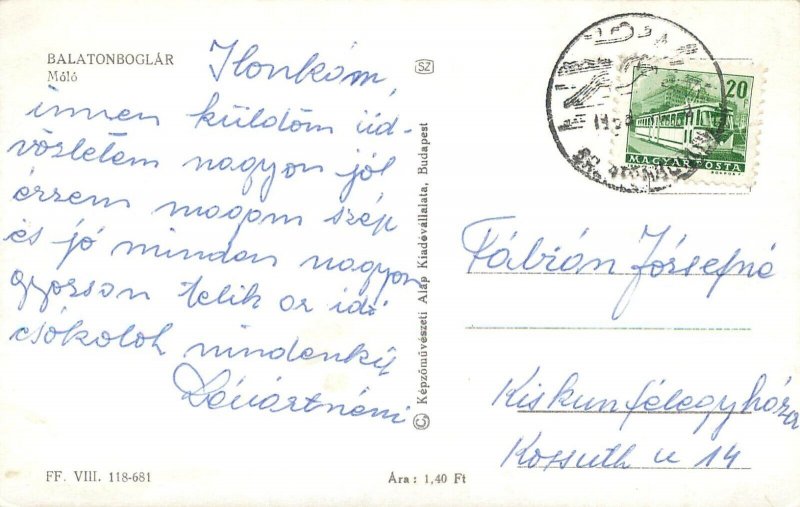 BALATONBOGLÁR
Móló
Ilonkám,
innen küldöm üd-
vözletem nagyon jól
érzem magam szép
és jó minden nagyon
gyorsan telik az idő
csókolok mindenkit
SZ
© Képzőművészeti Alap Kiadóvállalata, Budapest
20
MAGYAR POSTA
Fábián Józsefné
Kiskunfélegyháza
Kossuth u 14
FF. VIII. 118-681
Ára : 1,40 Ft